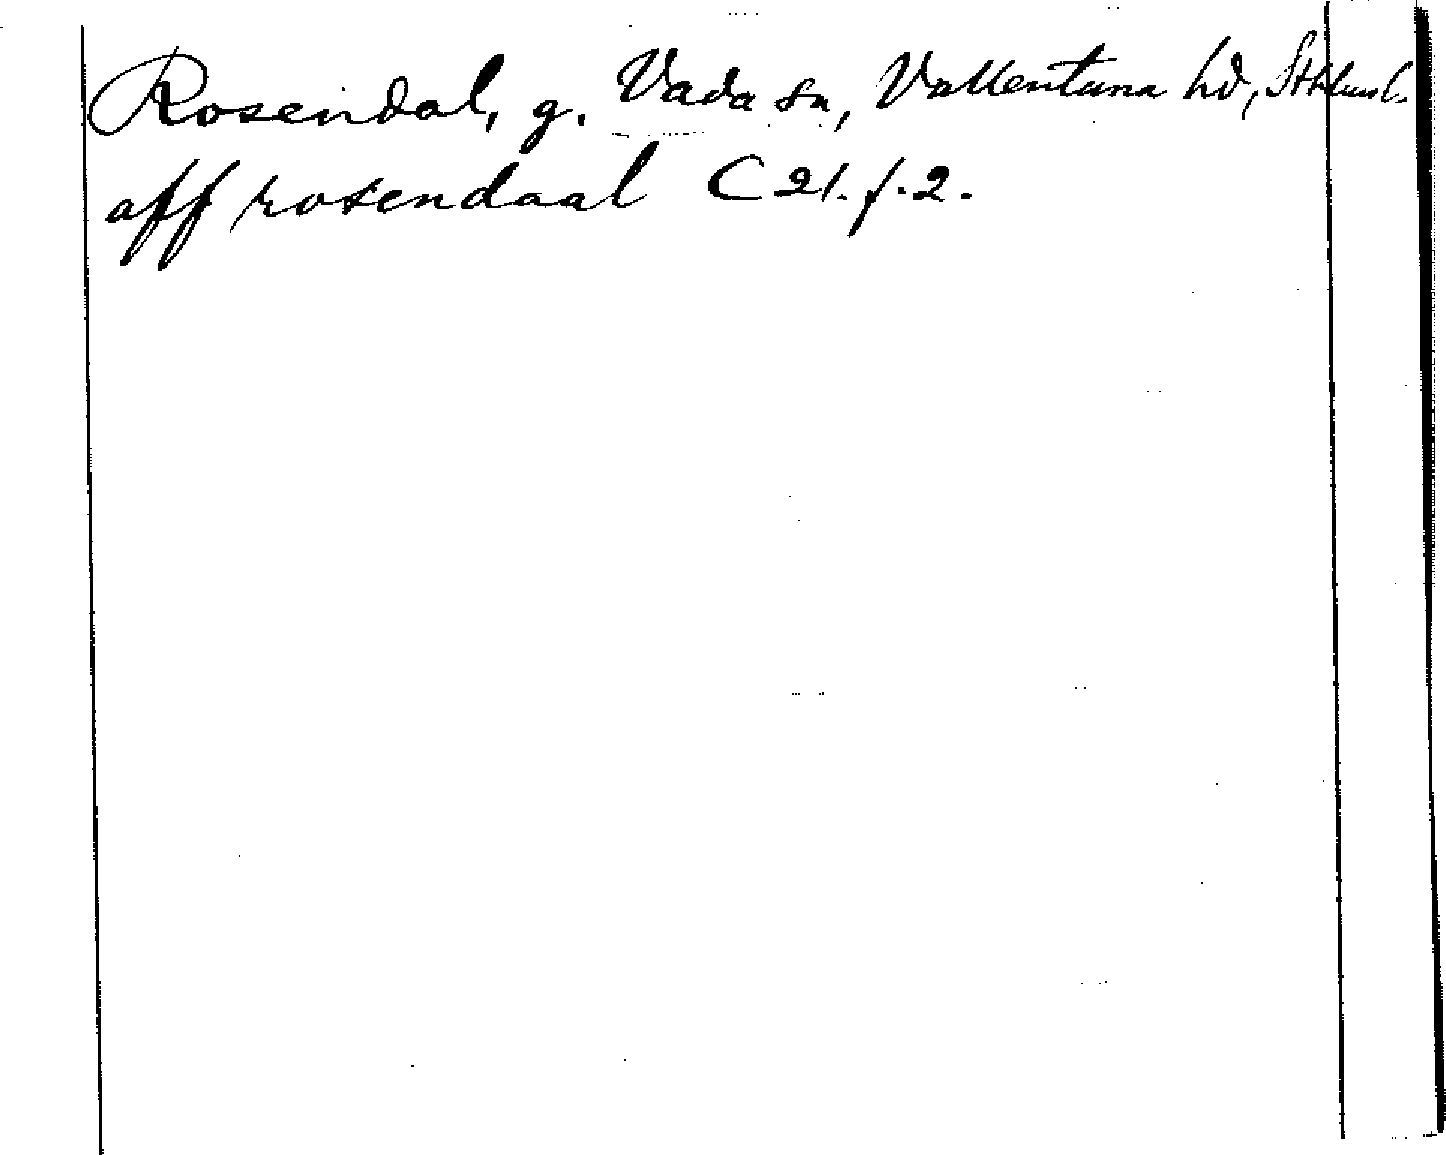 Rosendal, g. Vada sn, Vallentuna hd, Sthlms l.
aff rosendaal C 21. f. 2.